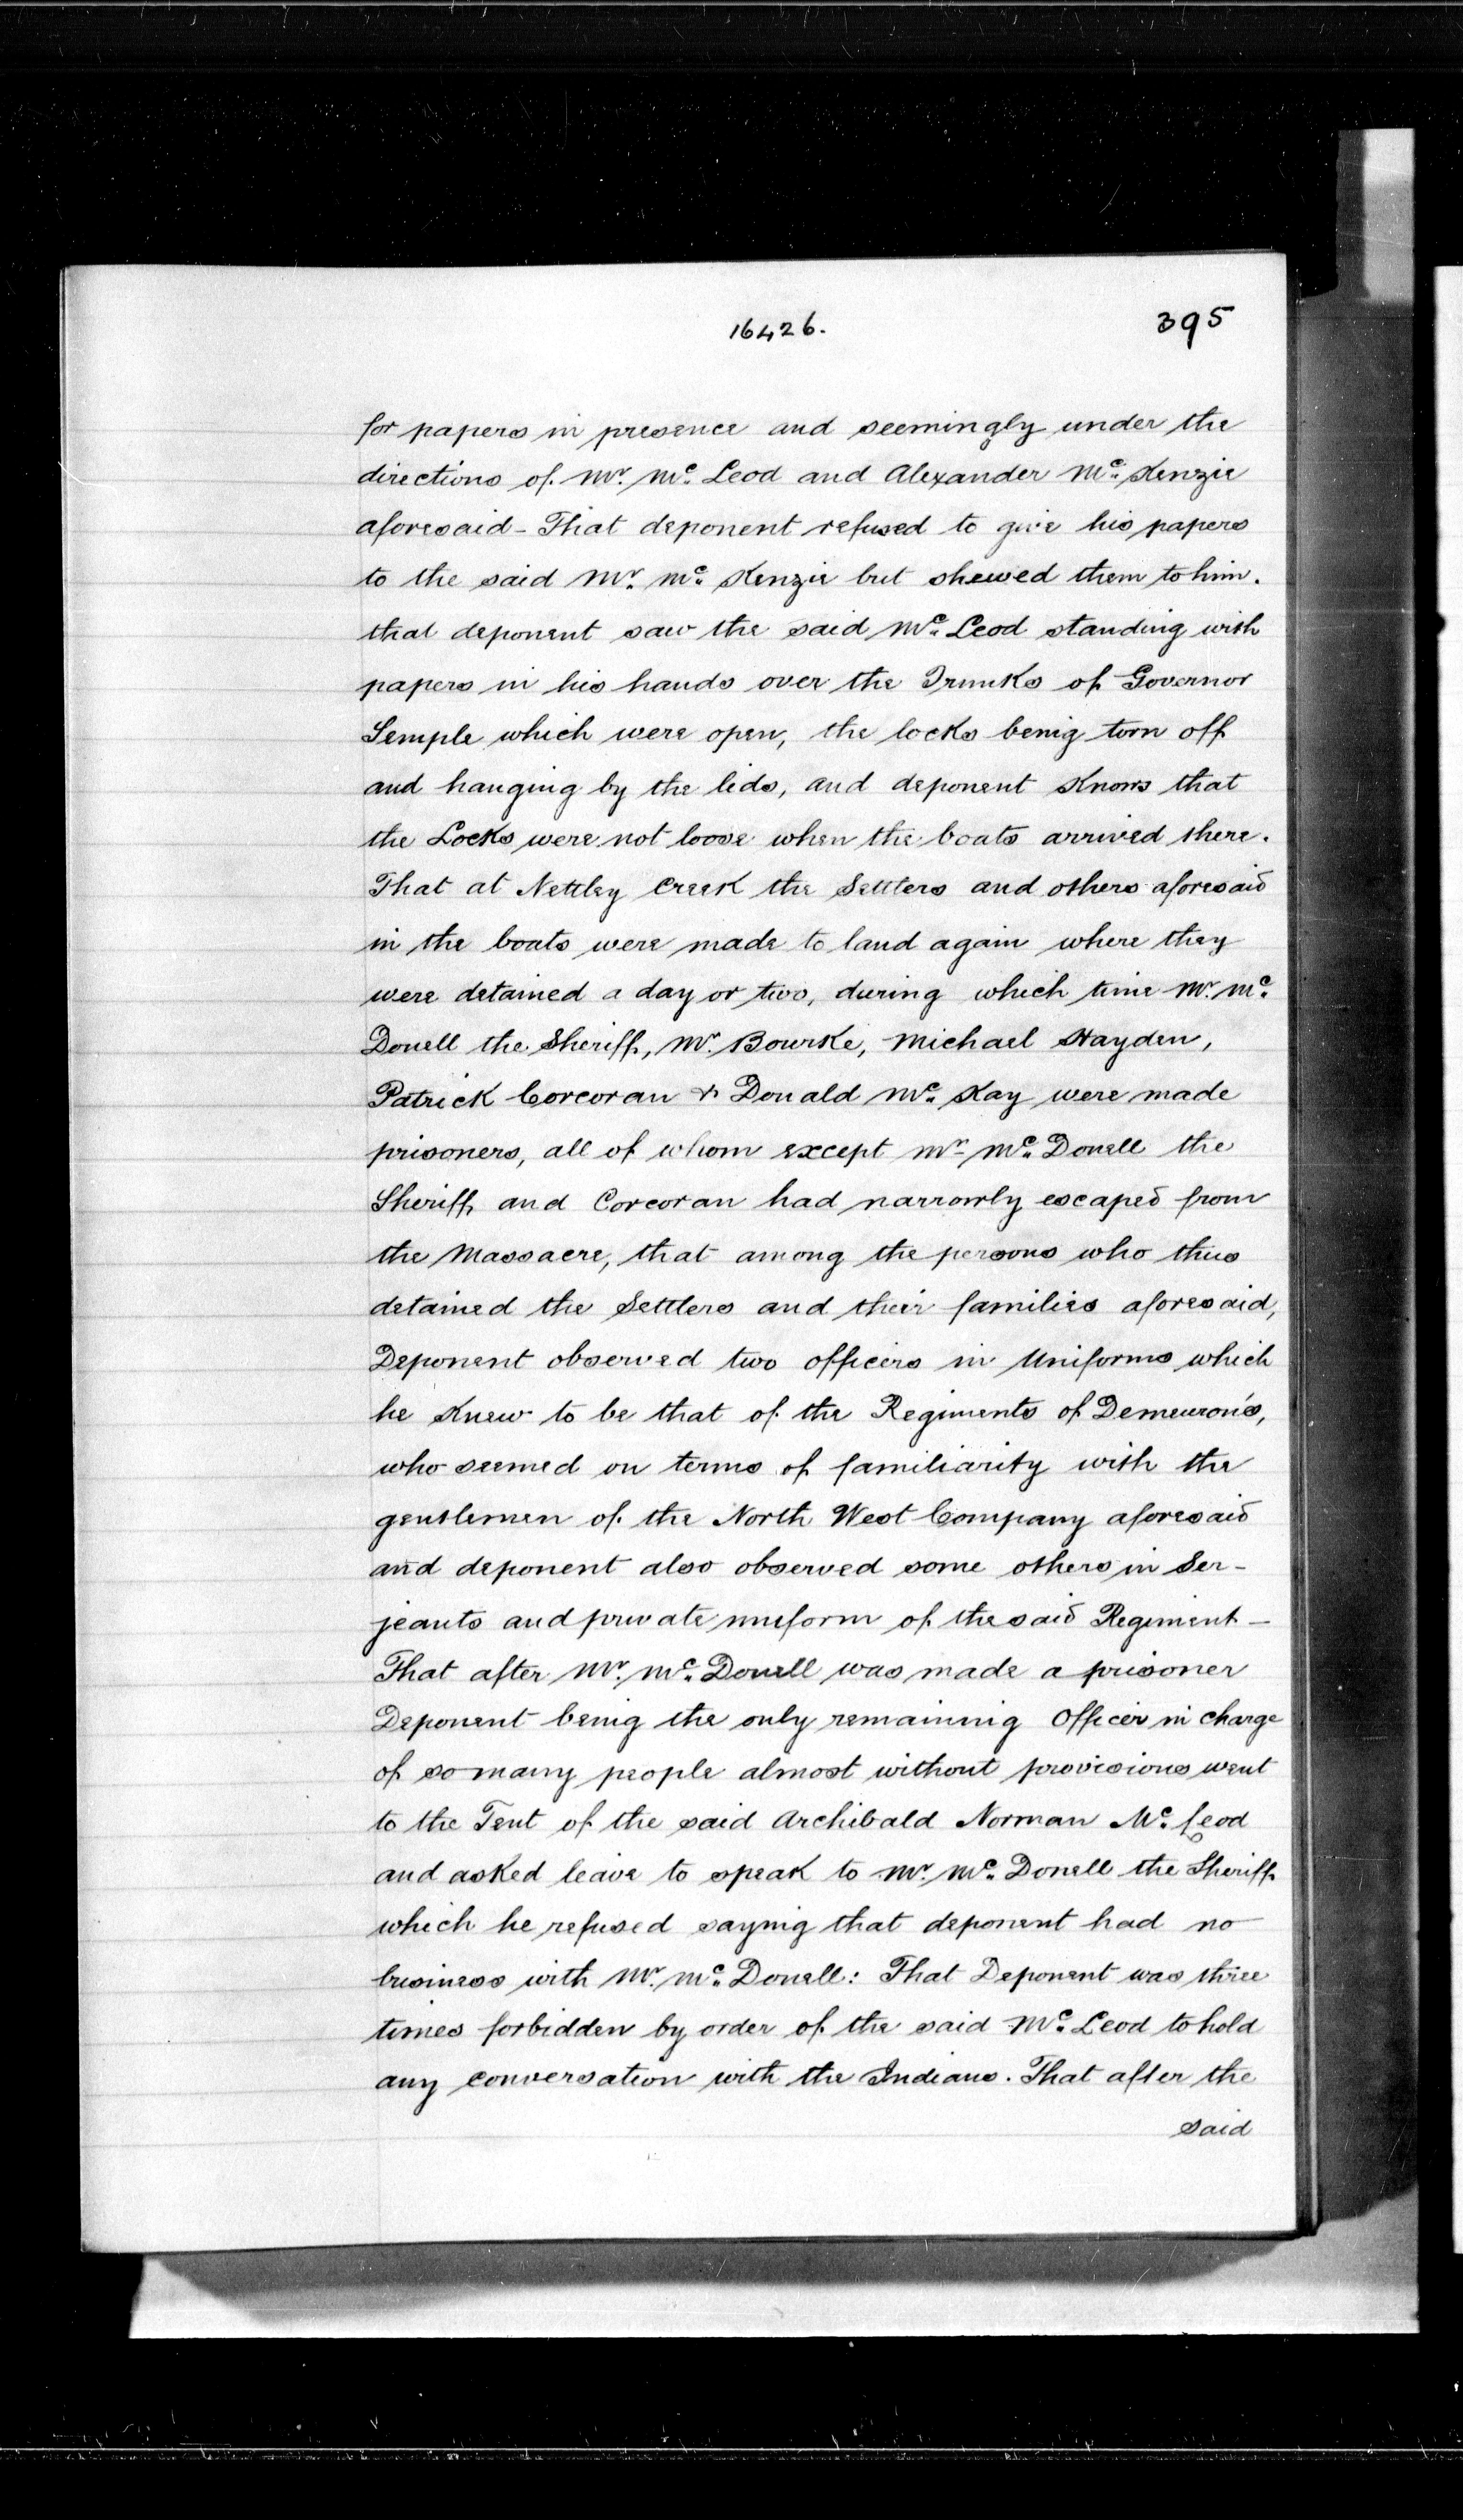 16426.
395
for papers in presence and seemingly under the
directions of Mr. Mc. Leod and Alexander Mc. Kenzie
aforesaid - That deponent refused to give his papers
to the said Mr. Mc. Kenzie but shewed them to him.
that deponent saw the said Mc. Leod standing with
papers in his hands over the Trunks of Governor
Semple which were open, the locks being torn off
and hanging by the lids, and deponent knows that
the Locks were not loose when the boats arrived there.
That at Nettley Creek the Settlers and others aforesaid
in the boats were made to land again where they
were detained a day or two, during which time Mr. Mc.
Donell the Sheriff, Mr. Bourke, Michael Hayden,
Patrick Corcoran & Donald Mc. Kay were made
prisoners, all of whom except Mr. Mc. Donell the
Sheriff and Corcoran had narrowly escaped from
the Massacre, that among the persons who thus
detained the Settlers and their families aforesaid,
Deponent observed two officers in Uniforms which
he knew to be that of the Regiments of Demeuron's,
who seemed on terms of familiarity with the
gentlemen of the North West Company aforesaid
and deponent also observed some others in Ser-
jeants and private uniform of the said Regiment -
That after Mr. Mc. Donell was made a prisoner
Deponent being the only remaining Officer in charge
of so many people almost without provisions went
to the Tent of the said Archibald Norman Mc. Leod
and asked leave to speak to Mr. Mc. Donell the Sheriff
which he refused saying that deponent had no
business with Mr. Mc. Donell: That Deponent was three
times forbidden by order of the said Mc. Leod to hold
any conversation with the Indians. That after the
said